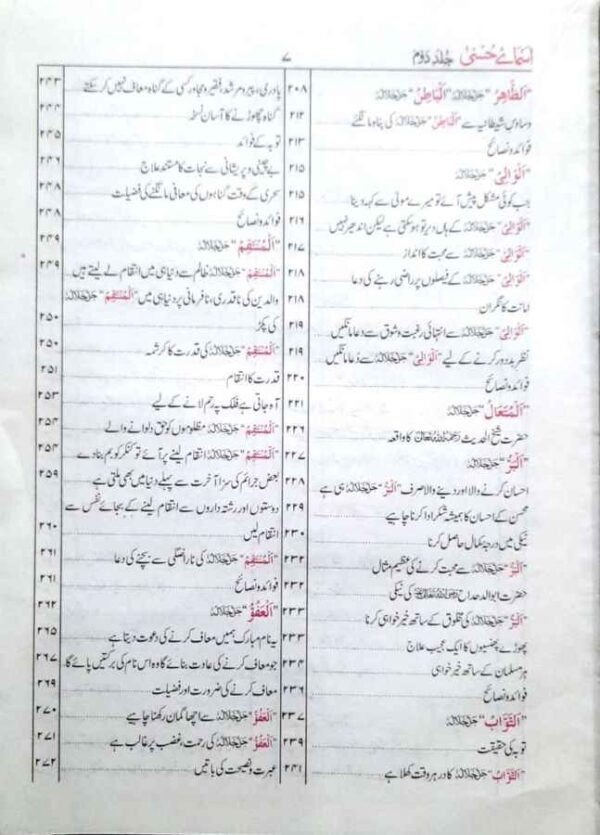 اسمائے حُسنیٰ جُلد دَوم
۷
"اَلظَّاهِرُ" جَلَّ جَلَالُہٗ "اَلْبَاطِنُ" جَلَّ جَلَالُہٗ ۲۰۸
وساوسِ شیطانیہ سے "اَلْبَاطِنُ" جَلَّ جَلَالُہٗ کی پناہ مانگئے ۲۱۲
فوائد و نصائح ۲۱۳
"اَلْوَالِیْ" جَلَّ جَلَالُہٗ ۲۱۵
جب کوئی مشکل پیش آئے تو میرے مولیٰ سے کہہ دینا ۲۱۵
"اَلْوَالِیْ" جَلَّ جَلَالُہٗ کے ہاں دیر تو ہو سکتی ہے لیکن اندھیر نہیں ۲۱۶
"اَلْوَالِیْ" جَلَّ جَلَالُہٗ سے محبت کا انداز ۲۱۷
"اَلْوَالِیْ" جَلَّ جَلَالُہٗ کے فیصلوں پر راضی رہنے کی دعا ۲۱۸
امانت کا نگران ۲۱۸
"اَلْوَالِیْ" جَلَّ جَلَالُہٗ سے انتہائی رغبت و شوق سے دعا مانگیں ۲۱۹
نظرِ بد دور کرنے کے لیے "اَلْوَالِیْ" جَلَّ جَلَالُہٗ سے دُعا مانگیں ۲۱۹
فوائد و نصائح ۲۲۰
"اَلْمُتَعَالُ" جَلَّ جَلَالُہٗ ۲۲۱
حضرت شیخ الحدیث رَحِمَہُ اللہُ تَعَالٰی کا واقعہ ۲۲۶
"اَلْبَرُّ" جَلَّ جَلَالُہٗ ۲۲۷
احسان کرنے والا اور دینے والا صرف "اَلْبَرُّ" جَلَّ جَلَالُہٗ ہی ہے ۲۲۸
محسن کے احسان کا ہمیشہ شکر ادا کرنا چاہیے ۲۲۹
نیکی میں درجہ کمال حاصل کرنا ۲۳۰
"اَلْبَرُّ" جَلَّ جَلَالُہٗ سے محبت کرنے کی عظیم مثال ۲۳۲
حضرت ابوالدحداح رَضِیَ اللہُ تَعَالٰی عَنْہُ کی نیکی ۲۳۲
"اَلْبَرُّ" جَلَّ جَلَالُہٗ کی مخلوق کے ساتھ خیر خواہی کرنا ۲۳۳
پھوڑے پھنسیوں کا ایک عجیب علاج ۲۳۳
ہر مسلمان کے ساتھ خیر خواہی ۲۳۴
فوائد و نصائح ۲۳۶
"اَلتَّوَّابُ" جَلَّ جَلَالُہٗ ۲۳۷
توبہ کی حقیقت ۲۳۹
"اَلتَّوَّابُ" جَلَّ جَلَالُہٗ کا در ہر وقت کھلا ہے ۲۴۱
پادری، پیر و مرشد، فقیر و مجاور کسی کے گناہ معاف نہیں کر سکتے ۲۴۳
گناہ چھوڑنے کا آسان نسخہ ۲۴۴
توبہ کے فوائد ۲۴۵
بے چینی و پریشانی سے نجات کا مستند علاج ۲۴۶
سحری کے وقت گناہوں کی معافی مانگنے کی فضیلت ۲۴۸
فوائد و نصائح ۲۴۸
"اَلْمُنْتَقِمُ" جَلَّ جَلَالُہٗ ۲۴۹
"اَلْمُنْتَقِمُ" جَلَّ جَلَالُہٗ ظالم سے دنیا ہی میں انتقام لے لیتے ہیں ۲۴۹
والدین کی ناقدری، نافرمانی پر دنیا ہی میں "اَلْمُنْتَقِمُ" جَلَّ جَلَالُہٗ
کی پکڑ ۲۵۰
"اَلْمُنْتَقِمُ" جَلَّ جَلَالُہٗ کی قدرت کا کرشمہ ۲۵۰
قدرت کا انتقام ۲۵۱
آہ جاتی ہے فلک پہ رحم لانے کے لیے ۲۵۳
"اَلْمُنْتَقِمُ" جَلَّ جَلَالُہٗ مظلوموں کو حق دلوانے والے ۲۵۴
"اَلْمُنْتَقِمُ" جَلَّ جَلَالُہٗ انتقام لینے پر آئے تو کنکر کو بم بنادے ۲۵۴
بعض جرائم کی سزا آخرت سے پہلے دنیا میں بھی ملتی ہے ۲۵۹
دوستوں اور رشتہ داروں سے انتقام لینے کے بجائے نفس سے
انتقام لیں ۲۶۰
"اَلْمُنْتَقِمُ" جَلَّ جَلَالُہٗ کی ناراضگی سے بچنے کی دعا ۲۶۱
فوائد و نصائح ۲۶۱
"اَلْعَفُوُّ" جَلَّ جَلَالُہٗ ۲۶۲
یہ نام مبارک ہمیں معاف کرنے کی دعوت دیتا ہے ۲۶۵
جو معاف کرنے کی عادت بنائے گا وہ اس نام کی برکتیں پائے گا ۲۶۷
معاف کرنے کی ضرورت اور فضیلت ۲۶۹
"اَلْعَفُوُّ" جَلَّ جَلَالُہٗ سے اچھا گمان رکھنا چاہیے ۲۷۰
"اَلْعَفُوُّ" جَلَّ جَلَالُہٗ کی رحمت، غضب پر غالب ہے ۲۷۱
عبرت و نصیحت کی باتیں ۲۷۲